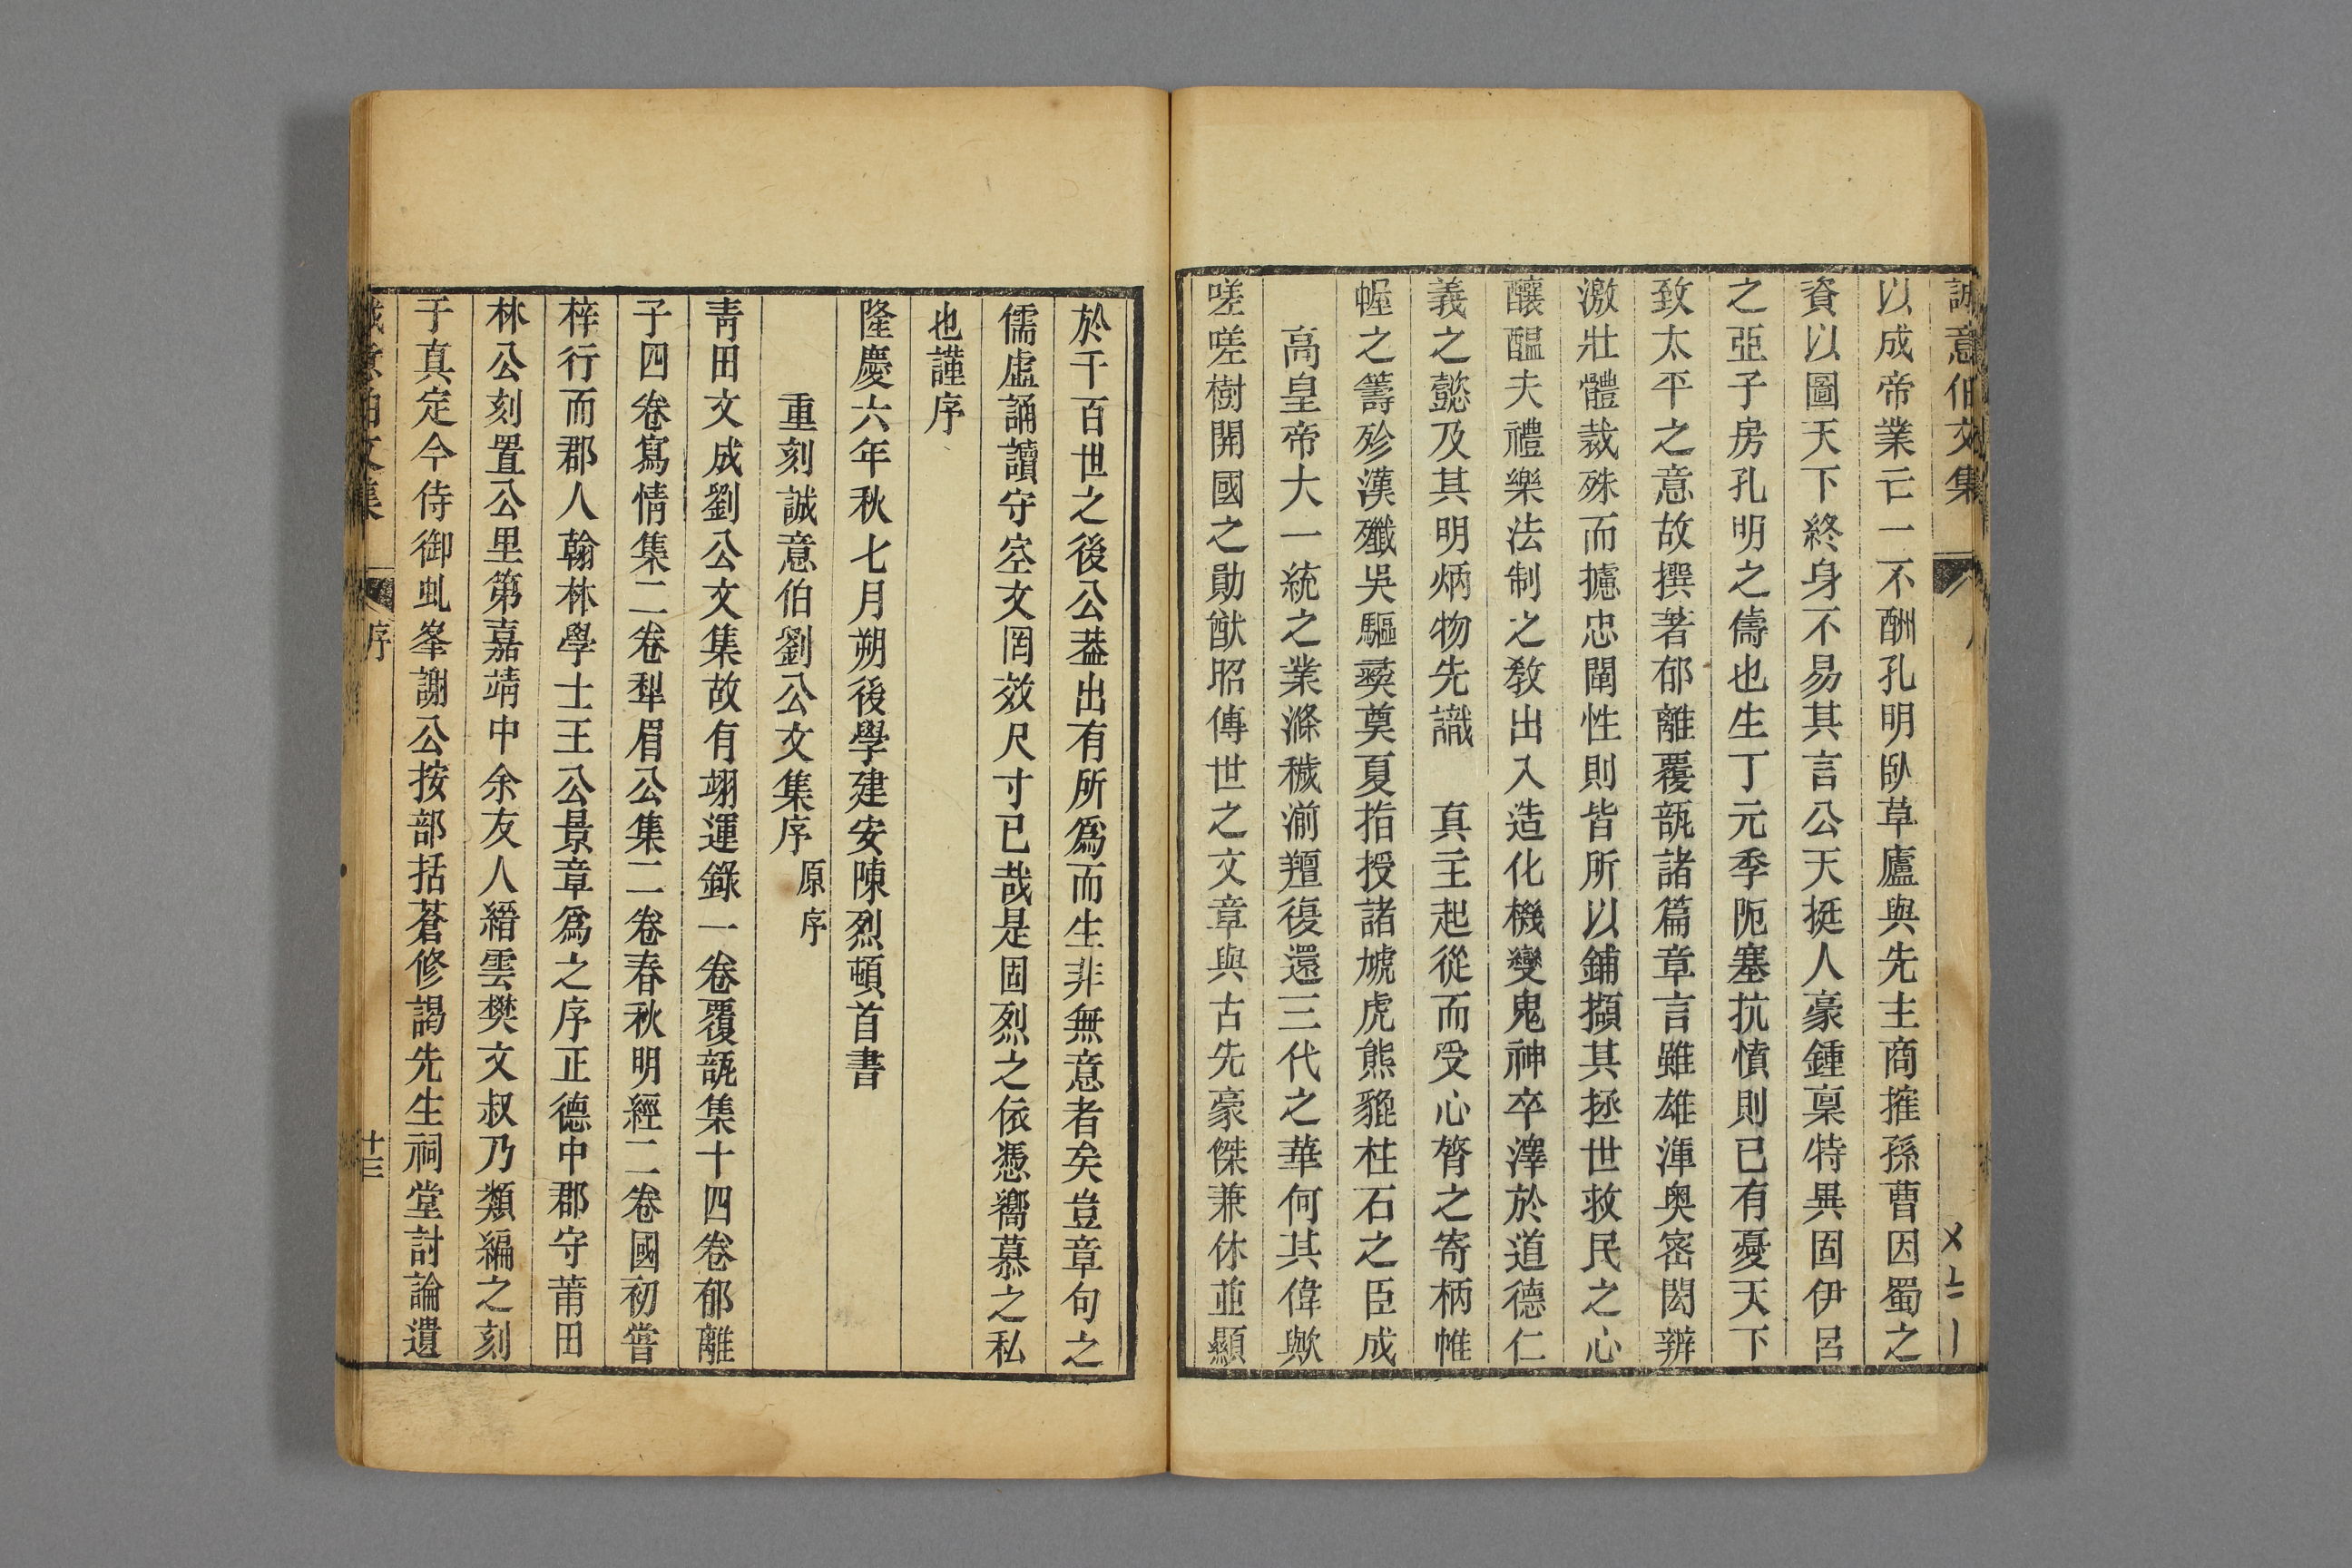 誠意伯文集
以成帝業亡一不酬孔明臥草廬與先主商搉孫曹因蜀之
資以圖天下終身不易其言公天挺人豪鍾稟特異固伊呂
之亞子房孔明之儔也生丁元季阨塞抗憤則已有憂天下
致太平之意故撰著郁離覆瓿諸篇章言雖雄渾奥密閎辨
激壯體裁殊而攄忠闡性則皆所以鋪擷其拯世救民之心
釀醞夫禮樂法制之敎出入造化機變鬼神卒澤於道德仁
義之懿及其明炳物先識　真主起從而受心膂之寄柄帷
幄之籌殄漢殲吳驅䝟奠夏指授諸虓虎熊貔柱石之臣成
高皇帝大一統之業滌穢湔羶復還三代之華何其偉歟
嗟嗟樹開國之勛猷昭傳世之文章與古先豪傑兼休並顯
於千百世之後公葢出有所爲而生非無意者矣豈章句之
儒虛誦讀守空文罔效尺寸已哉是固烈之依憑嚮慕之私
也謹序
隆慶六年秋七月朔後學建安陳烈頓首書
重刻誠意伯劉公文集序 原序
青田文成劉公文集故有翊運錄一卷覆瓿集十四卷郁離
子四卷寫情集二卷犁眉公集二卷春秋明經二卷國初嘗
梓行而郡人翰林學士王公景章爲之序正德中郡守莆田
林公刻置公里第嘉靖中余友人縉雲樊文叔乃類編之刻
于真定今侍御虬峯謝公按部括蒼修謁先生祠堂討論遺
誠意伯文集 序 十三